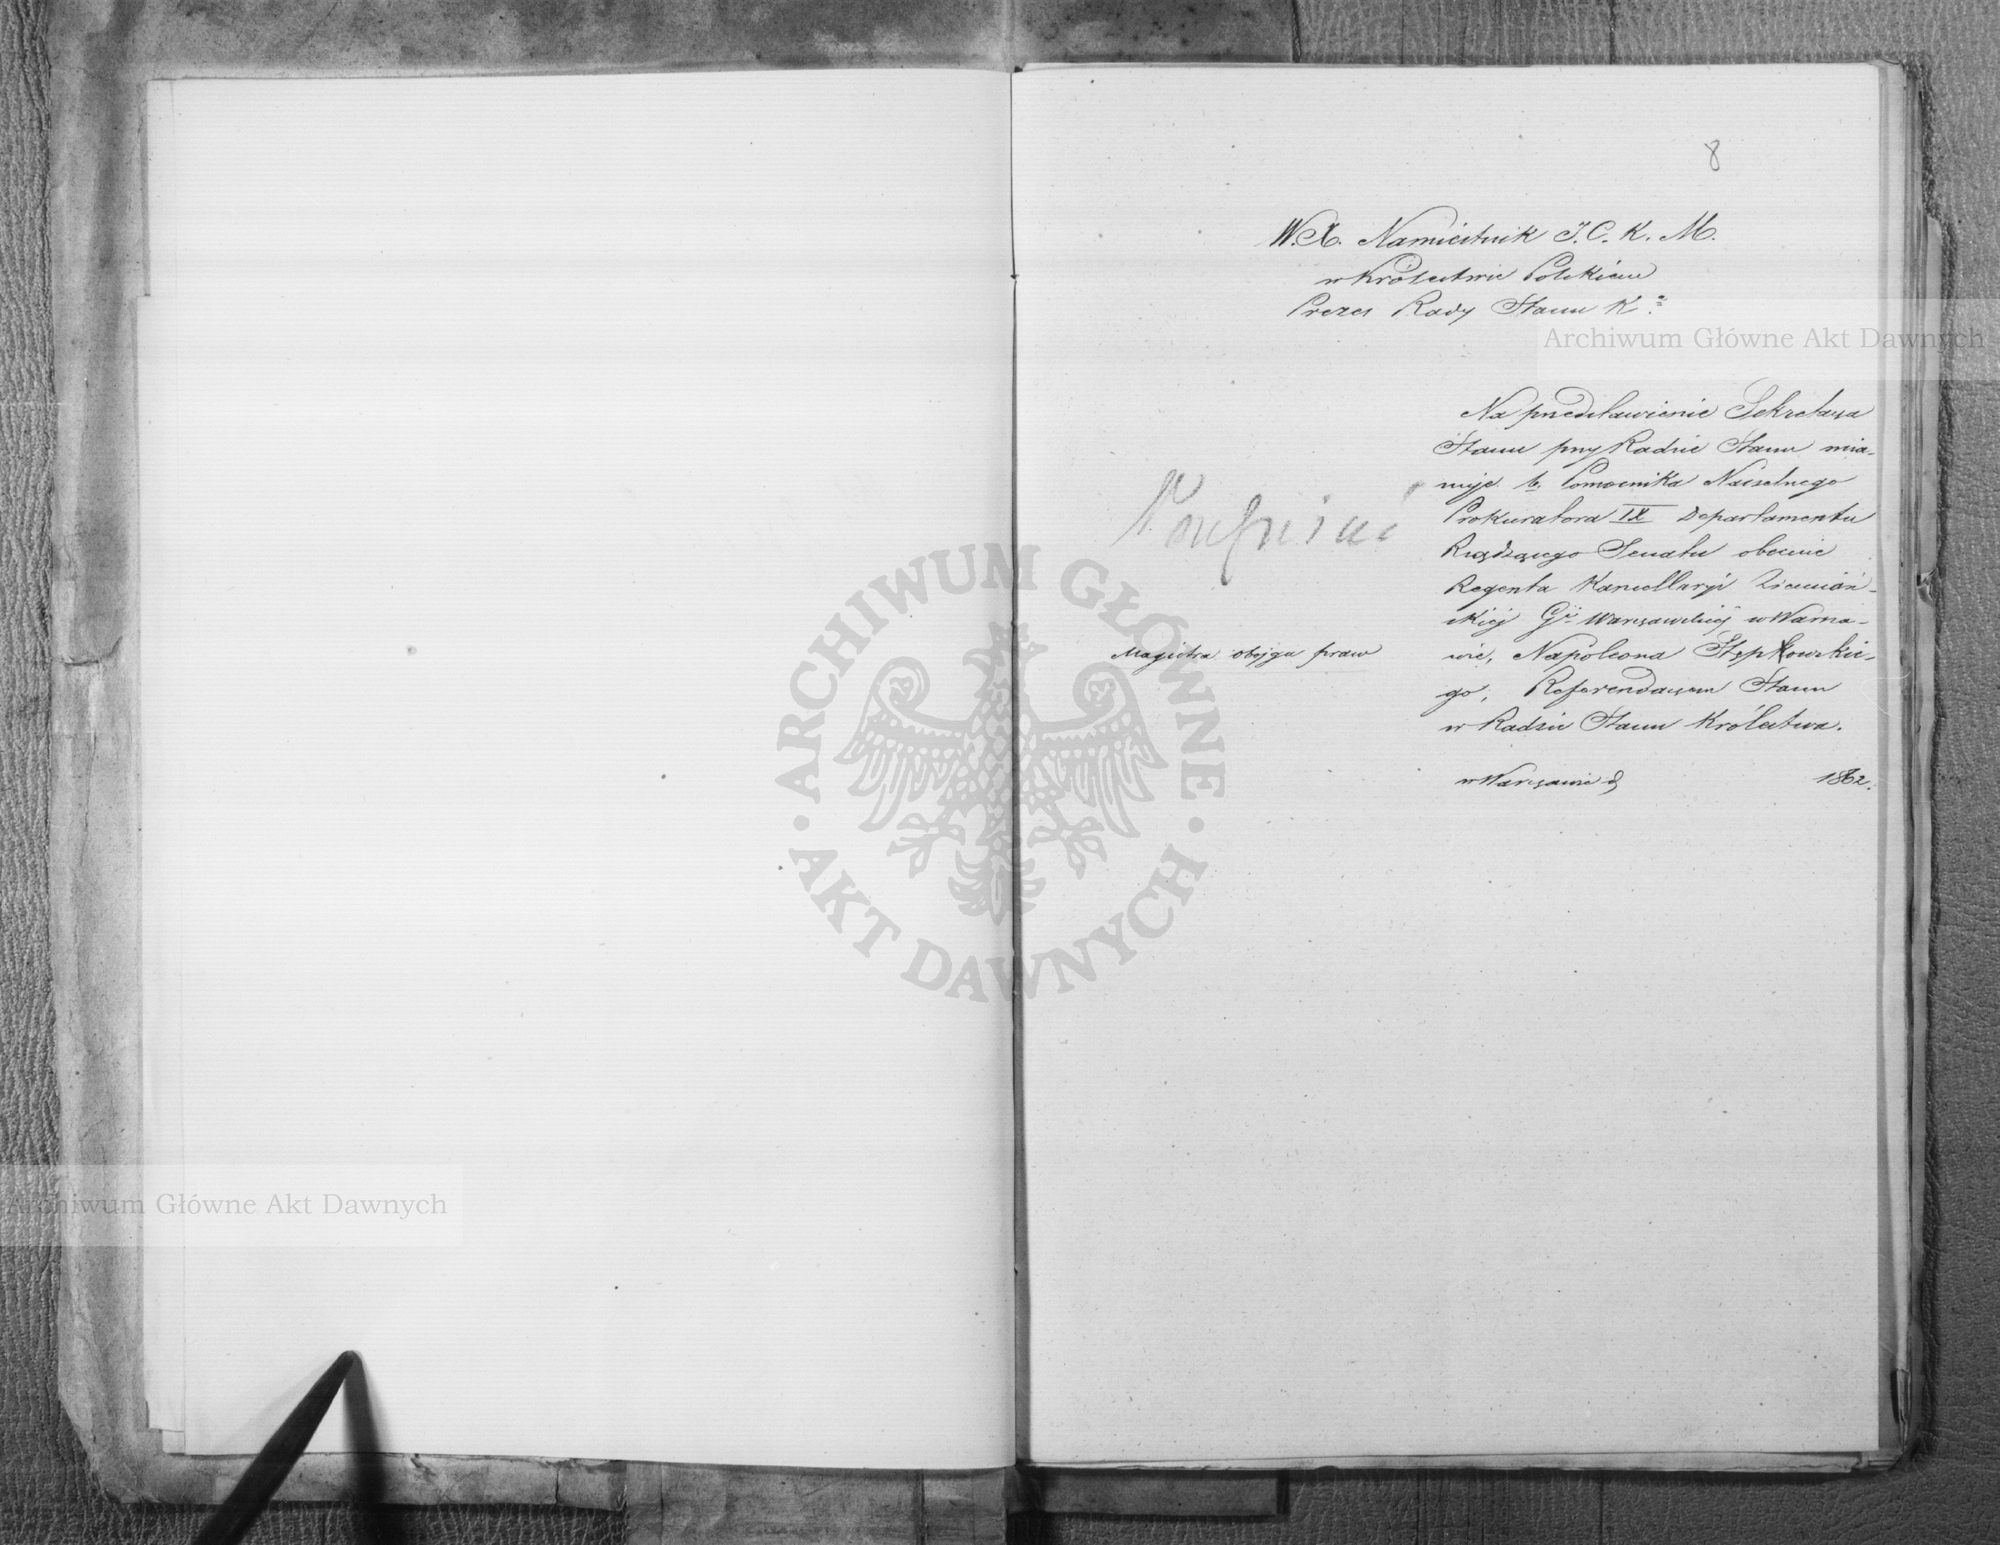 8
W.X. Namiestnik J.C.K.M.
w Królestwie Polskiém
Prezes Rady Stanu K.
Archiwum Główne Akt Dawnych
Na przedstawienie Sekretarza
Stanu przy Radzie Stanu mia-
nuje b. Pomocnika Naczelnego
Prokuratora IX Departamentu
Rządzącego Senatu obecnie
Regenta Kancellaryi Ziemiań-
skiéj Gii Warszawskiéj w Warsza-
wie, Napoleona Stępkowskie-
Magistra obojga praw
go, Referendarzem Stanu
w Radzie Stanu Królestwa.
w Warszawie d 1862.
ARCHIWUM GŁÓWNE
AKT DAWNYCH
Archiwum Główne Akt Dawnych